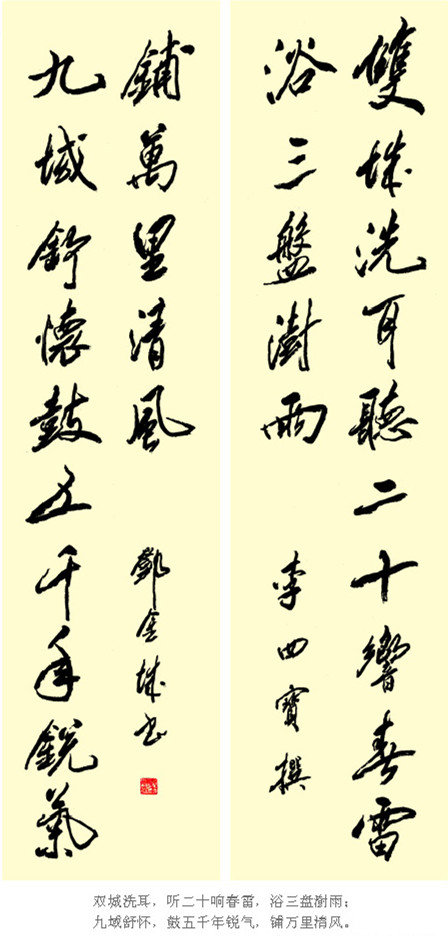 雙城洗耳聽二十響春雷
浴三盤澍雨
李四寶撰
九域舒懷鼓五千年銳氣
鋪萬里清風
鄧金城書
双城洗耳，听二十响春雷，浴三盘澍雨；
九域舒怀，鼓五千年锐气，铺万里清风。